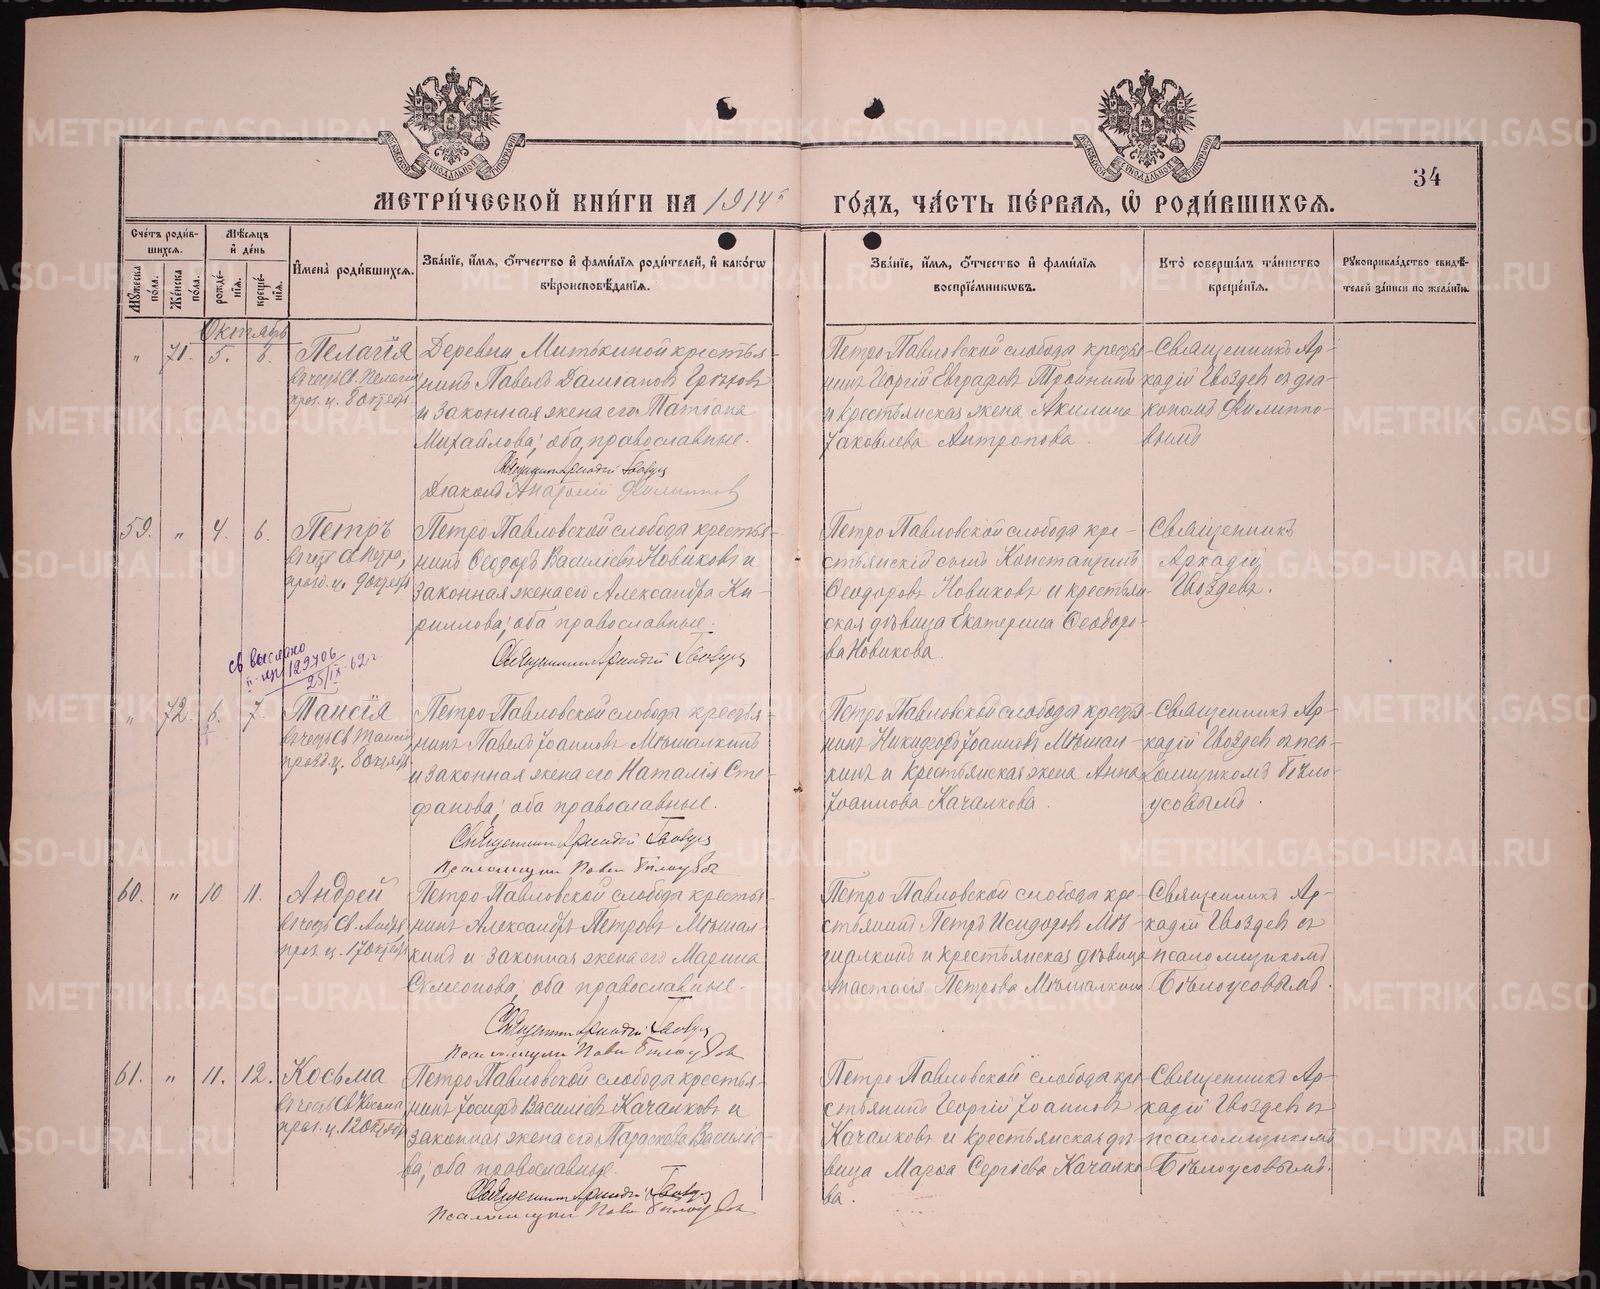 34
МЕТРИ́ЧЕСКОЙ КНИ́ГИ НА 1914й ГО́ДЪ, ЧА́СТЬ ПЕ́РВАЯ, Ѡ РОДИ́ВШИХСЯ.
Сче́тъ роди́в-
шихся.
Мꙋ́жеска по́ла.
Же́нска по́ла.
Мѣ́сяцъ
и де́нь
рожде́нїя.
креще́нїя.
И҆мена̀ роди́вшихся.
Зва́нїе, и҆́мя, ѻ҆́тчество и҆ фами́лїя роди́телей, и҆ како́гѡ
вѣроисповѣ́данїя.
Зва́нїе, и҆́мя, ѻ҆́тчество и҆ фами́лїя
воспрїе́мникѡвъ.
Кто̀ соверша́лъ та́инство
креще́нїя.
Рꙋкоприкла́дство свидѣ́-
телей за́писи по жела́нїю.
Октябрь
" 71. 5. 6. Пелагія
въ честь Св. Пелагіи
праз. ц. 8 октября
Деревни Митькиной крестья-
нинъ Павелъ Даміановъ
и законная жена его Татіана
Михайлова; оба православные.
Священникъ Аркадій Гвоздевъ
Діаконъ Анатолій Филипповъ
Петро Павловской слободы кресть-
нинъ Георгій Евграфовъ
и крестьянская жена Акилина
Іаковлева Антропова.
Священникъ Ар-
кадій Гвоздев съ діа-
кономъ Филиппо-
вымъ
59. " 4. 6. Петръ
въ честь Св. Петра,
празд. ц. 9 октября
Петро Павловской слободы крестья-
нинъ Ѳеодоръ Василіевъ Новиковъ и
законная жена его Александра Ки-
риллова; оба православные.
Священникъ Аркадій Гвоздевъ
Петро Павловской слободы кре-
стьянскій сынъ Константинъ
Ѳеодоровъ Новиковъ и крестьян-
ская дѣвица Екатерина Ѳеодоро-
ва Новикова.
Священникъ
Аркадій
Гвоздевъ.
св выслано
129706
25/IX-62 г.
" 72. 6. 7. Таисія
въ честь Св. Таисіи
празд. ц. 8 октября
Петро Павловской слободы крестья-
нинъ Павелъ Іоанновъ Мѣшалкинъ
и законная жена его Наталія Сте-
фанова; оба православные.
Священникъ Аркадій Гвоздевъ
Псаломщикъ Павел Бѣлоусовъ
Петро Павловской слободы кресть-
нинъ Никифоръ Іоанновъ Мѣшал-
кинъ и крестьянская жена Анна
Іоаннова Качалкова.
Священникъ Ар-
кадій Гвоздев съ пса-
ломщикомъ Бѣло-
усовымъ.
60. " 10 11. Андрей
въ честь Св. Андрея
праз. ц. 17 октября
Петро Павловской слободы крестья-
нинъ Александръ Петровъ Мѣшал-
кинъ и законная жена его Марина
Симеонова; оба православные.
Священникъ Аркадій Гвоздевъ
Псаломщикъ Павел Бѣлоусовъ
Петро Павловской слободы кре-
стьянинъ Петръ Исидоровъ Мѣ-
шалкинъ и крестьянская дѣвица
Анастасія Петрова Мѣшалкина.
Священникъ Ар-
кадій Гвоздев съ
псаломщикомъ
Бѣлоусовымъ.
61. " 11. 12. Косьма
въ честь Св. Косьмы
праз. ц. 12 октября
Петро Павловской слободы крестья-
нинъ Іосифъ Василіевъ Качалковъ и
законная жена его Параскева Василіе-
ва; оба православные.
Священникъ Аркадій Гвоздевъ
Псаломщикъ Павел Бѣлоусовъ
Петро Павловской слободы кре-
стьянинъ Георгій Іоанновъ
Качалковъ и крестьянская дѣ-
вица Марѳа Сергіева Качалко-
ва.
Священникъ Ар-
кадій Гвоздев съ
псаломщикомъ
Бѣлоусовымъ.
METRIKI.GASO-URAL.RU